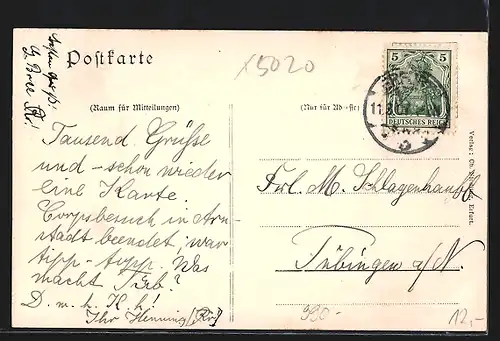 Besten Gruß!
G. Bree
Postkarte
x5020
(Raum für Mitteilungen)
(Nur für Adresse)
5 5
DEUTSCHES REICH
11.
Tausend Grüsse
und - schon wieder
eine Karte.
Corpsbesuch in Arn-
stadt beendet; war
tipp-topp. Was
macht Türb?
D. m. h. H. h!
Ihr Henning
Frl. M. Schlagenhauff
Tübingen a/N.
Verlag: Erfurt.
990-
12,-